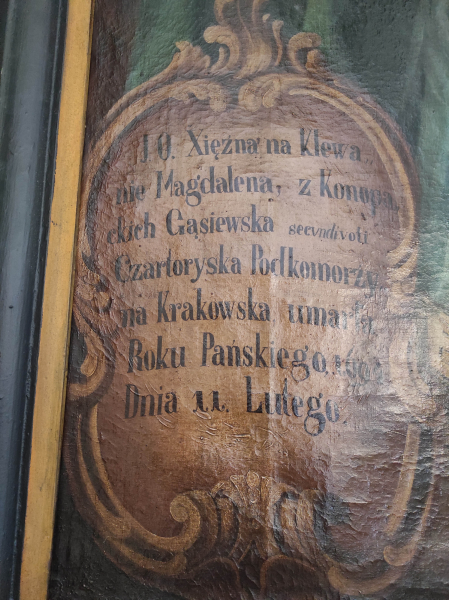 J. O. Xięzna na Klewa
nie Magdalena, z Konopa
ckich Gąsiewska secvndi voti
Czartoryska Podkomorzy
na Krakowska umarła
Roku Pańskiego
Dnia 11. Lutego.